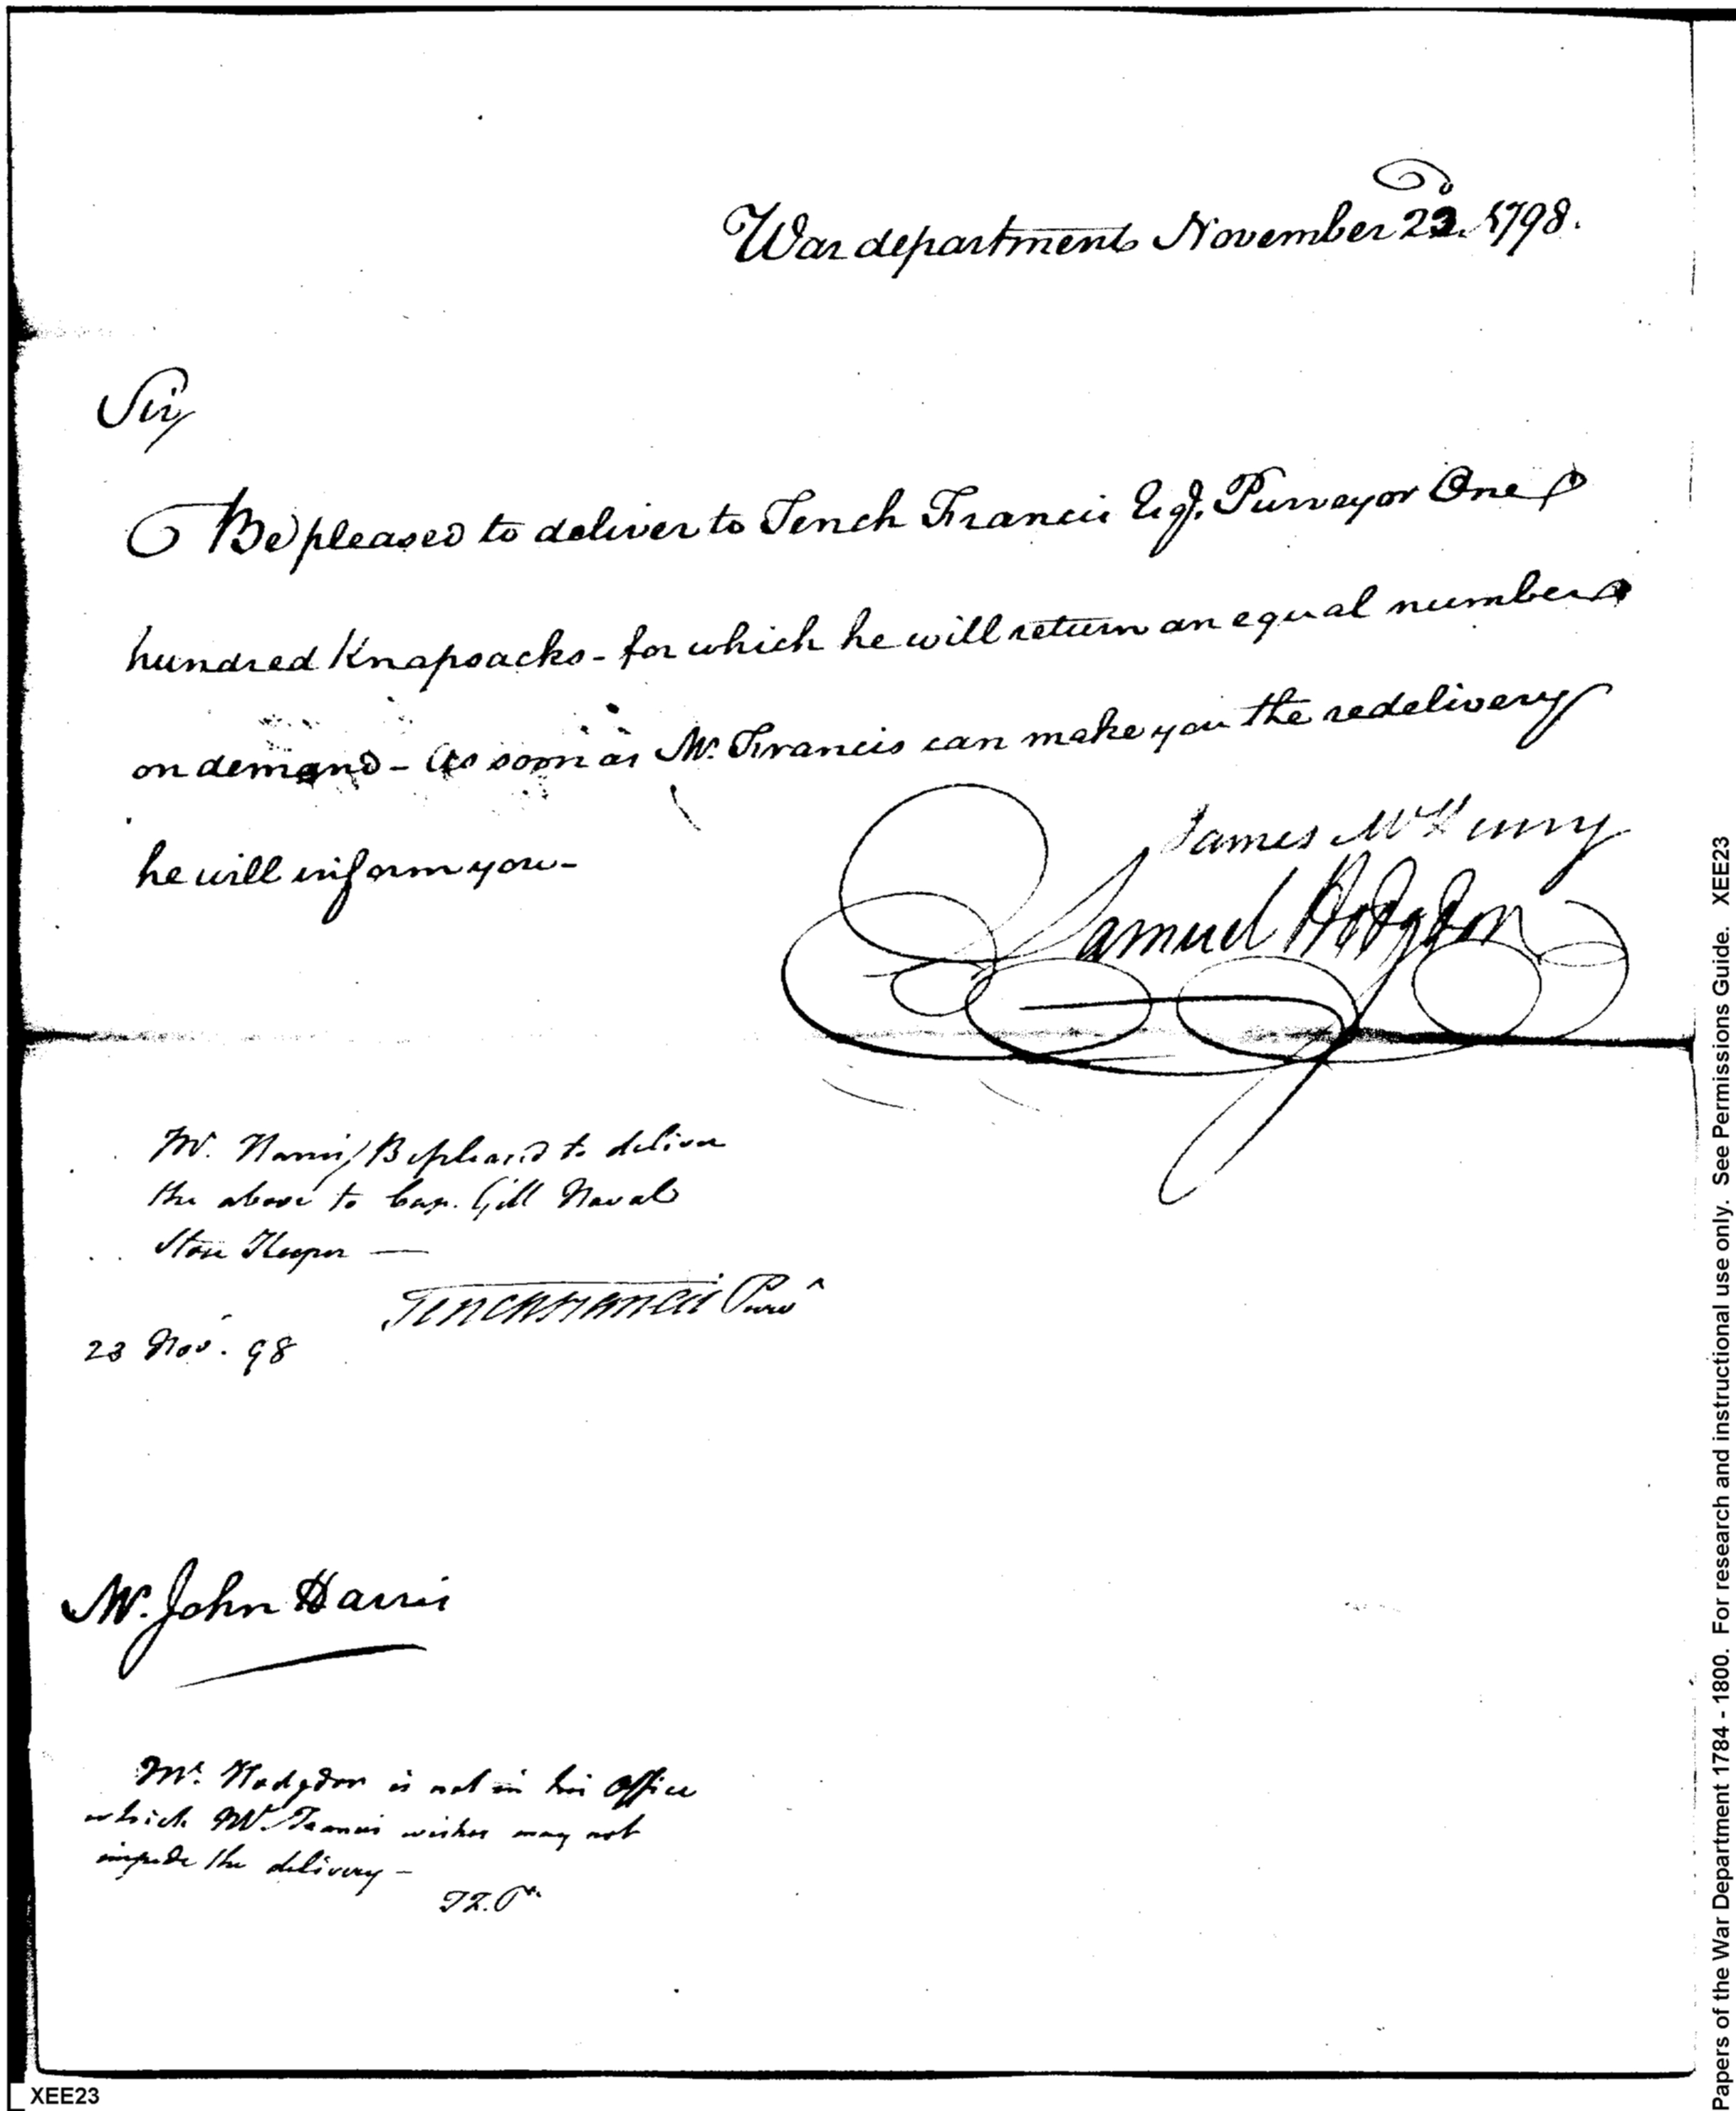 War department November 23d. 1798.
Sir
Be pleased to deliver to Tench Francis Esq. Purveyor One
hundred Knapsacks - for which he will return an equal number
on demand - As soon as Mr. Francis can make you the redelivery
he will inform you -
James McHenry
Samuel Hodgdon
Mr. Harris, Be pleased to deliver
the above to Cap. Gill Naval
Store Keeper —
Tench Francis Purvr
23 Nov. 98
Mr. John Harris
Mr. Hodgdon is not in his office
which Mr. Francis wishes may not
impede the delivery -
XEE23
Papers of the War Department 1784 - 1800. For research and instructional use only. See Permissions Guide. XEE23